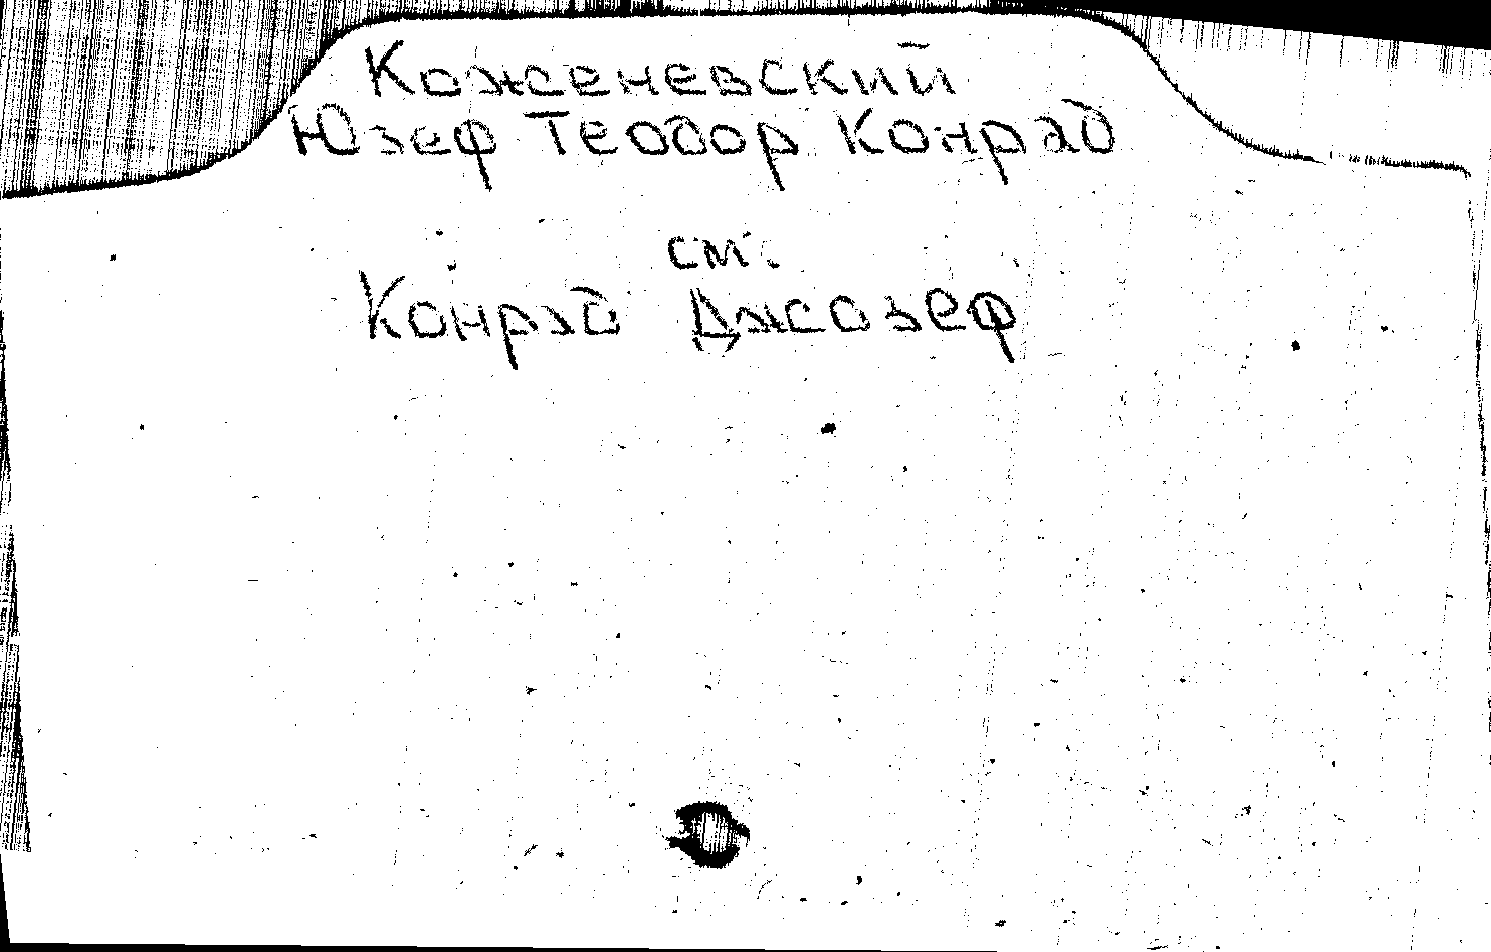 Коженевский
Юзеф Теодор Конрад
см.
Конрад Джозеф